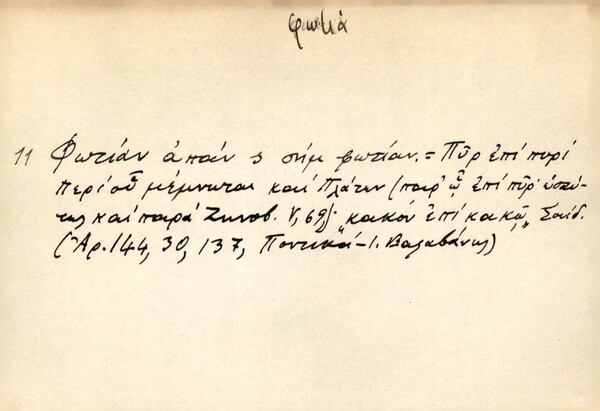 φωτιά
11 Φωτίαν ἀπάν ς σήμ φωτίαν. = Πῦρ ἐπί πυρί
περί οὗ μέμνηται καί Πλάτων (παρ' ᾧ ἐπί πῦρ· ὡσαύ-
τως καί παρά Ζηνοβ. V, 69)· "κακόν ἐπί κακῷ," Σουΐδ.
(Ἀρ. 144, 30, 137, Ποντικά - Ι. Βαλαβάνης)